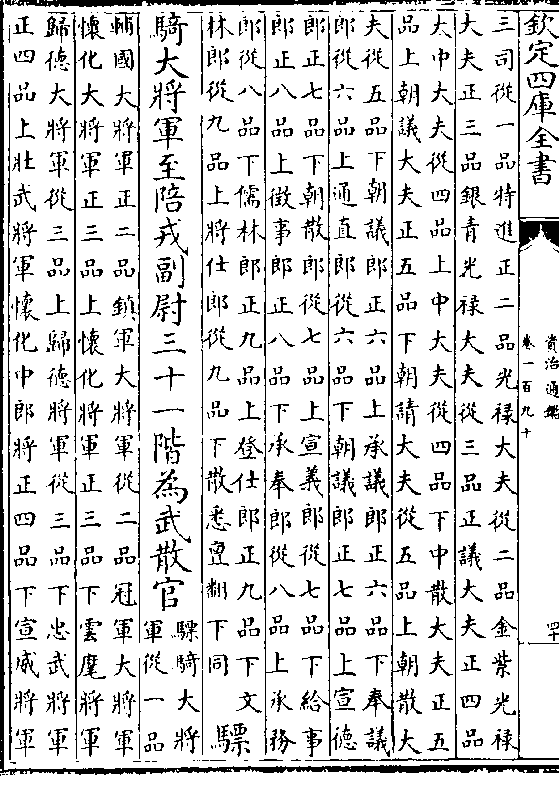 欽定四庫全書
資治通鑑
卷一百九十
四十
三司從一品特進正二品光禄大夫從二品金紫光禄
大夫正三品銀青光禄大夫從三品正議大夫正四品
大中大夫從四品上中大夫從四品下中散大夫正五
品上朝議大夫正五品下朝請大夫從五品上朝散大
夫從五品下朝議郎正六品上承議郎正六品下奉議
郎從六品上通直郎從六品下朝議郎正七品上宣德
郎正七品下朝散郎從七品上宣義郎從七品下給事
郎正八品上徵事郎正八品下承奉郎從八品上承務
郎從八品下儒林郎正九品上登仕郎正九品下文
林郎從九品上將仕郎從九品下散悉亶翻下同
驃
騎大將軍至陪戎副尉三十一階為武散官
驃騎大將
軍從一品
輔國大將軍正二品鎮軍大將軍從二品冠軍大將軍
懷化大將軍正三品上懷化將軍正三品下雲麾將軍
歸德大將軍從三品上歸德將軍從三品下忠武將軍
正四品上壯武將軍懷化中郎將正四品下宣威將軍